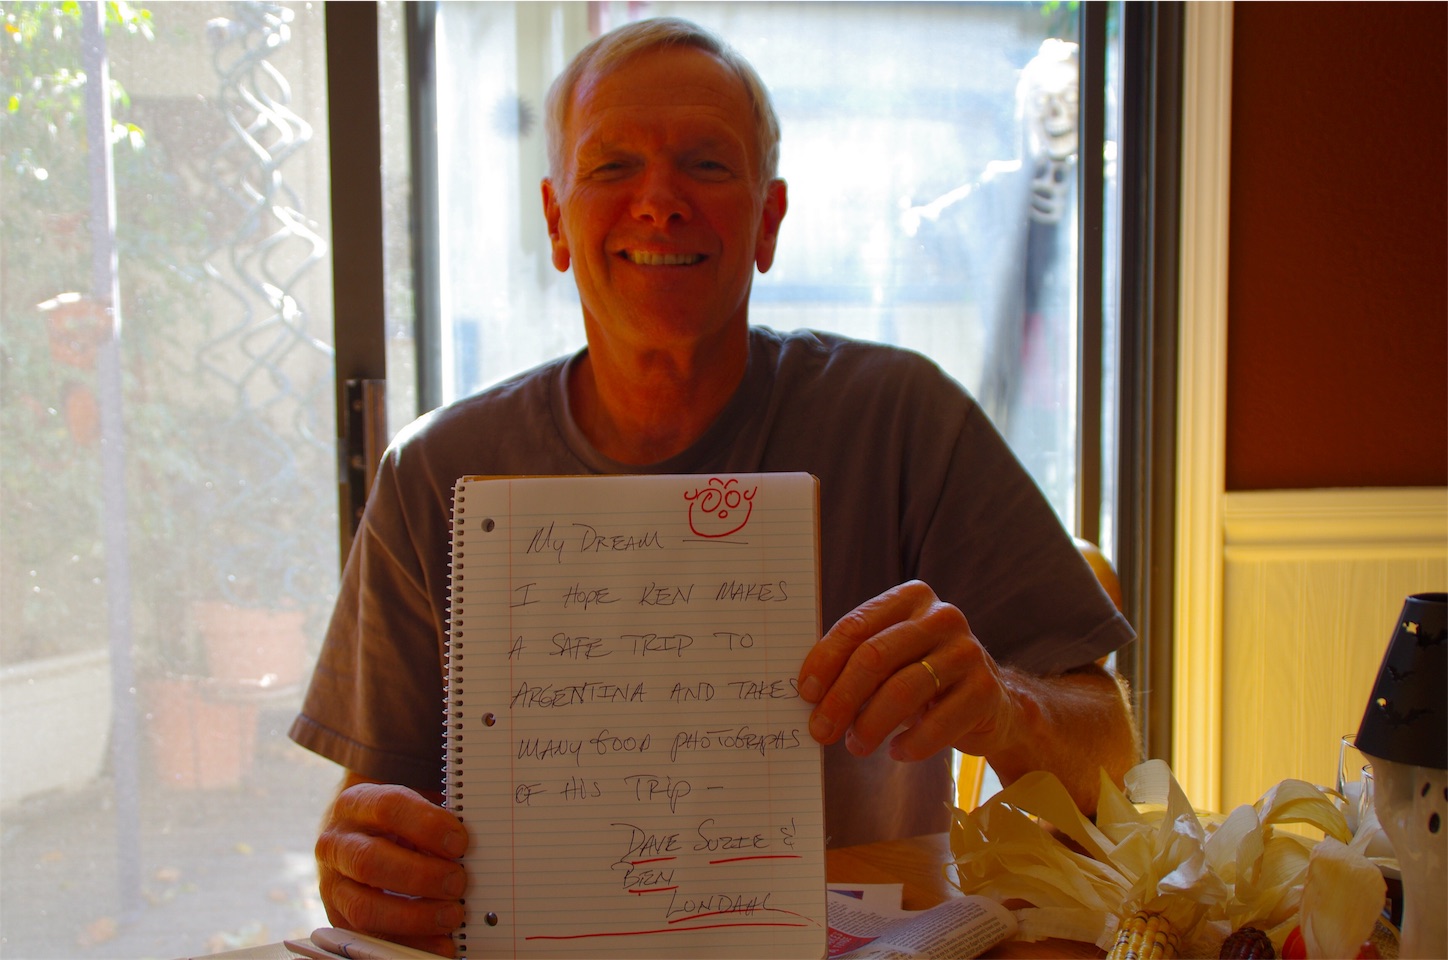 My DREAM
I HOPE KEN MAKES
A SAFE TRIP TO
ARGENTINA AND TAKES
MANY GOOD PHOTOGRAPHS
OF HIS TRIP –
DAVE SUZIE &
BEN
LUNDAHL